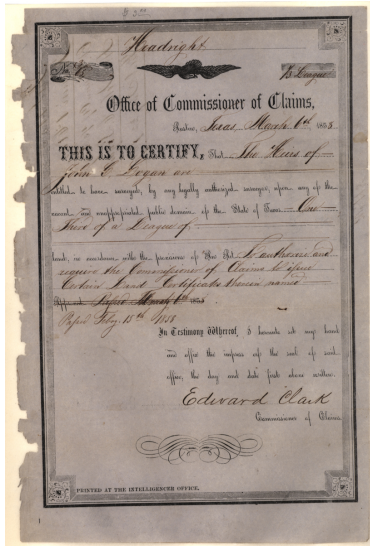 $ 3.00
Headright
No.
1/3 League
Office of Commissioner of Claims,
Austin, Texas, March 6th 1858
THIS IS TO CERTIFY, That The Heirs of
John G. Logan are
entitled to have surveyed, by any legally authorized surveyor, upon any of the
vacant and unappropriated public domain of the State of Texas One
Third of a League of
land, in accordance with the provisions of An Act To authorize and
require the Commissioner of Claims to issue
Certain Land Certificates therein named
Approved March 6th 185
Passed Feby. 15th 1858
In Testimony Whereof, I hereunto set my hand
and affix the impress of the seal of said
office, the day and date first above written.
Edward Clark
Commissioner of Claims.
PRINTED AT THE INTELLIGENCER OFFICE.